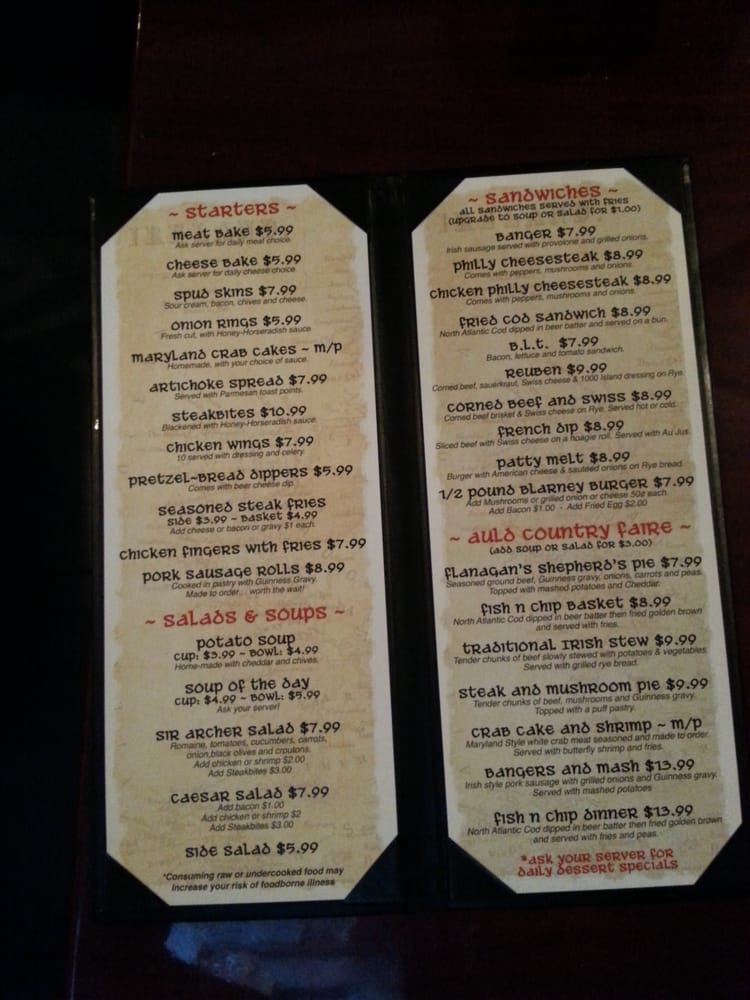 ~ Starters ~
Meat Bake $5.99
Ask server for daily meat choice.
Cheese Bake $5.99
Ask server for daily cheese choice.
Spud Skins $7.99
Sour cream, bacon, chives and cheese.
Onion Rings $5.99
Fresh cut, with Honey-Horseradish sauce.
Maryland Crab Cakes ~ M/P
Homemade, with your choice of sauce.
Artichoke Spread $7.99
Served with Parmesan toast points.
Steakbites $10.99
Blackened with Honey-Horseradish sauce.
Chicken Wings $7.99
10 served with dressing and celery.
Pretzel-Bread Dippers $5.99
Comes with beer cheese dip.
Seasoned Steak Fries
Side $3.99 ~ Basket $4.99
Add cheese or bacon or gravy $1 each.
Chicken Fingers with Fries $7.99
Pork Sausage Rolls $8.99
Cooked in pastry with Guinness Gravy.
Made to order... worth the wait!
~ Salads & Soups ~
Potato Soup
Cup: $3.99 ~ Bowl: $4.99
Home-made with cheddar and chives.
Soup of the Day
Cup: $4.99 ~ Bowl: $5.99
Ask your server!
Sir Archer Salad $7.99
Romaine, tomatoes, cucumbers, carrots,
onion, black olives and croutons.
Add chicken or shrimp $2.00
Add Steakbites $3.00
Caesar Salad $7.99
Add bacon $1.00
Add chicken or shrimp $2
Add Steakbites $3.00
Side Salad $5.99
*Consuming raw or undercooked food may
increase your risk of foodborne illness
~ Sandwiches ~
All sandwiches served with fries
(upgrade to soup or salad for $1.00)
Banger $7.99
Irish sausage served with provolone and grilled onions.
Philly Cheesesteak $8.99
Comes with peppers, mushrooms and onions.
Chicken Philly Cheesesteak $8.99
Comes with peppers, mushrooms and onions.
Fried Cod Sandwich $8.99
North Atlantic Cod dipped in beer batter and served on a bun.
B.L.T. $7.99
Bacon, lettuce and tomato sandwich.
Reuben $9.99
Corned beef, sauerkraut, Swiss cheese & 1000 Island dressing on Rye.
Corned Beef and Swiss $8.99
Corned beef brisket & Swiss cheese on Rye. Served hot or cold.
French Dip $8.99
Sliced beef with Swiss cheese on a hoagie roll. Served with Au Jus.
Patty Melt $8.99
Burger with American cheese & sauteed onions on Rye bread.
1/2 Pound Blarney Burger $7.99
Add Mushrooms or grilled onion or cheese 50¢ each.
Add Bacon $1.00 - Add Fried Egg $2.00
~ Auld Country Faire ~
(add soup or salad for $3.00)
Flanagan's Shepherd's Pie $7.99
Seasoned ground beef, Guinness gravy, onions, carrots and peas.
Topped with mashed potatoes and Cheddar.
Fish n Chip Basket $8.99
North Atlantic Cod dipped in beer batter then fried golden brown
and served with fries.
Traditional Irish Stew $9.99
Tender chunks of beef slowly stewed with potatoes & vegetables.
Served with grilled rye bread.
Steak and Mushroom Pie $9.99
Tender chunks of beef, mushrooms and Guinness gravy.
Topped with a puff pastry.
Crab Cake and Shrimp ~ M/P
Maryland Style white crab meat seasoned and made to order.
Served with butterfly shrimp and fries.
Bangers and Mash $13.99
Irish style pork sausage with grilled onions and Guinness gravy.
Served with mashed potatoes
Fish n Chip Dinner $13.99
North Atlantic Cod dipped in beer batter then fried golden brown
and served with fries and peas.
*Ask your server for
daily dessert specials